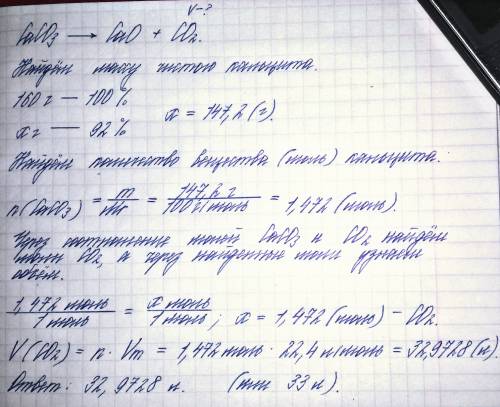 V-?
CaCO₃ → CaO + CO₂.
Найдём массу чистого кальцита.
160 г — 100 %
x г — 92 % x = 147,2 (г).
Найдём количество вещества (моль) кальцита.
n(CaCO₃) = m/Mr = 147,2 г/100 г/моль = 1,472 (моль).
Через соотношение молей CaCO₃ и CO₂ найдём
моли CO₂, а через найденные моли узнаем
объём.
1,472 моль/1 моль = x моль/1 моль; x = 1,472 (моль) – CO₂.
V(CO₂) = n · Vm = 1,472 моль · 22,4 л/моль = 32,9728 (л)
Ответ: 32,9728 л. (или 33 л).